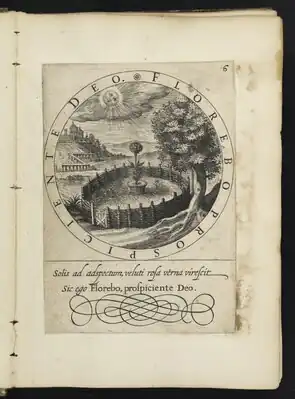 6
FLOREBO PROSPICIENTE DEO.
Solis ad adspectum, veluti rosa verna virescit
Sic ego Florebo, prospiciente Deo.